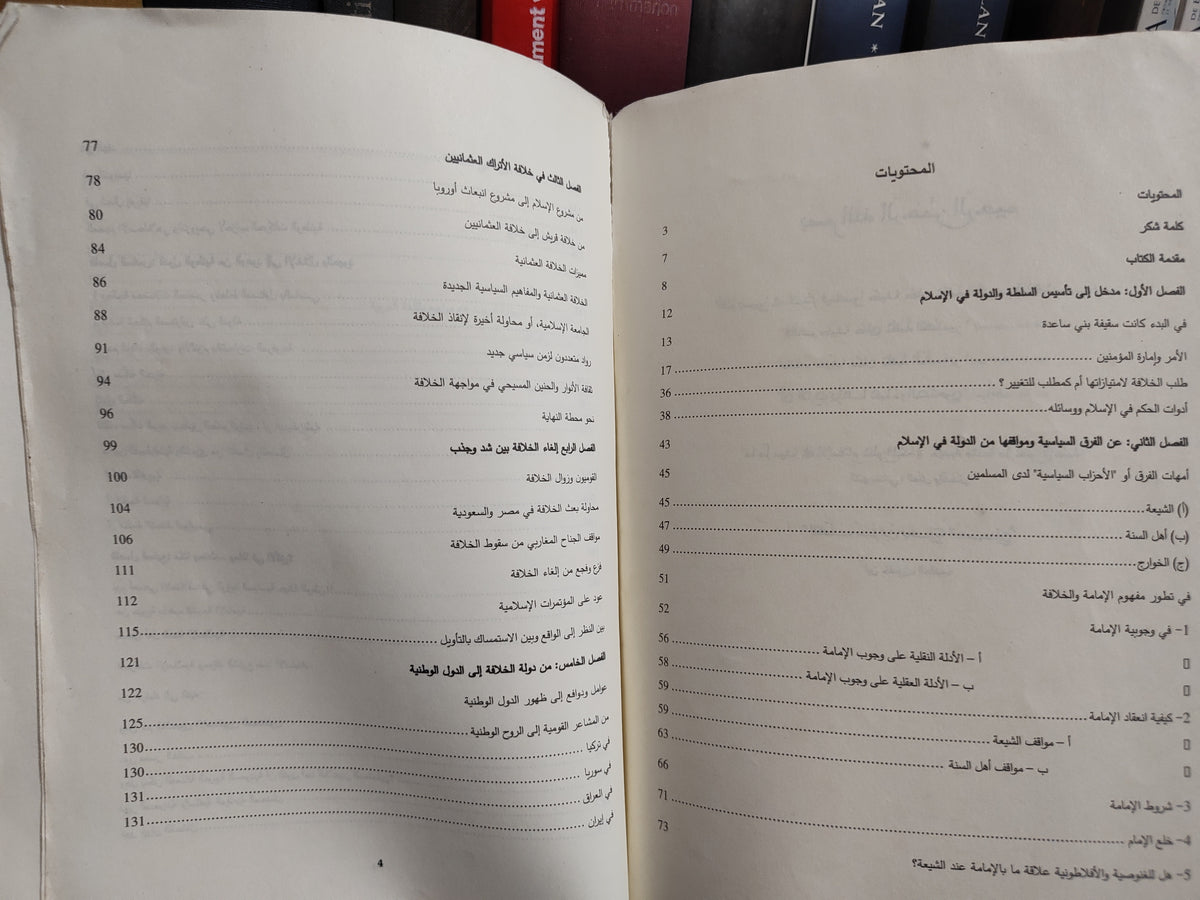 المحتويات
المحتويات 3
كلمة شكر 7
مقدمة الكتاب 8
الفصل الأول: مدخل إلى تأسيس السلطة والدولة في الإسلام 12
في البدء كانت سقيفة بني ساعدة 13
الأمر وإمارة المؤمنين 17
طلب الخلافة لامتيازاتها أم كمطلب للتغيير ؟ 36
أدوات الحكم في الإسلام ووسائله 38
الفصل الثاني: عن الفرق السياسية ومواقفها من الدولة في الإسلام 43
أمهات الفرق أو "الأحزاب السياسية" لدى المسلمين 45
(أ) الشيعة 45
(ب) أهل السنة 47
(ج) الخوارج 49
في تطور مفهوم الإمامة والخلافة 51
1- في وجوبية الإمامة 52
أ – الأدلة النقلية على وجوب الإمامة 56
ب – الأدلة العقلية على وجوب الإمامة 58
2- كيفية انعقاد الإمامة 59
أ – مواقف الشيعة 59
ب – مواقف أهل السنة 63
3- شروط الإمامة 66
4- خلع الإمام 71
5- هل للغنوصية والأفلاطونية علاقة ما بالإمامة عند الشيعة؟ 73
الفصل الثالث في خلافة الأتراك العثمانيين 77
من مشروع الإسلام إلى مشروع انبعاث أوروبا 78
من خلافة قريش إلى خلافة العثمانيين 80
مميزات الخلافة العثمانية 84
الخلافة العثمانية والمفاهيم السياسية الجديدة 86
الجامعة الإسلامية، أو محاولة أخيرة لإنقاذ الخلافة 88
رواد متعددون لزمن سياسي جديد 91
ثقافة الأنوار والحنين المسيحي في مواجهة الخلافة 94
نحو محطة النهاية 96
الفصل الرابع إلغاء الخلافة بين شد وجذب 99
القوميون وزوال الخلافة 100
محاولة بعث الخلافة في مصر والسعودية 104
مواقف الجناح المغاربي من سقوط الخلافة 106
فزع وفجع من إلغاء الخلافة 111
عود على المؤتمرات الإسلامية 112
بين النظر إلى الواقع وبين الاستمساك بالتأويل 115
الفصل الخامس: من دولة الخلافة إلى الدول الوطنية 121
عوامل ودوافع إلى ظهور الدول الوطنية 122
من المشاعر القومية إلى الروح الوطنية 125
في تركيا 130
في سوريا 130
في العراق 131
في إيران 131
4